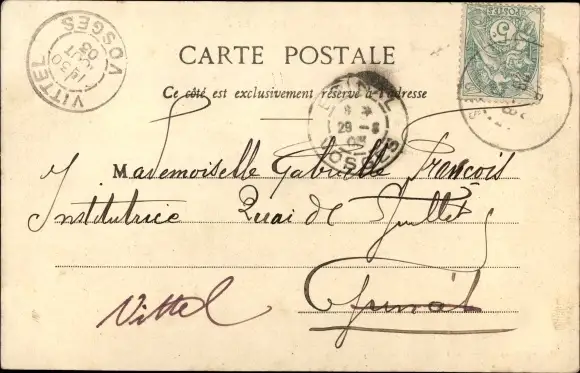 CARTE POSTALE
Ce côté est exclusivement réservé à l'adresse
VITTEL
VOSGES
VITTEL
29 - 8
VOSGES
Mademoiselle Gabrielle François
Institutrice Quai de Juillet
Epinal
Vittel